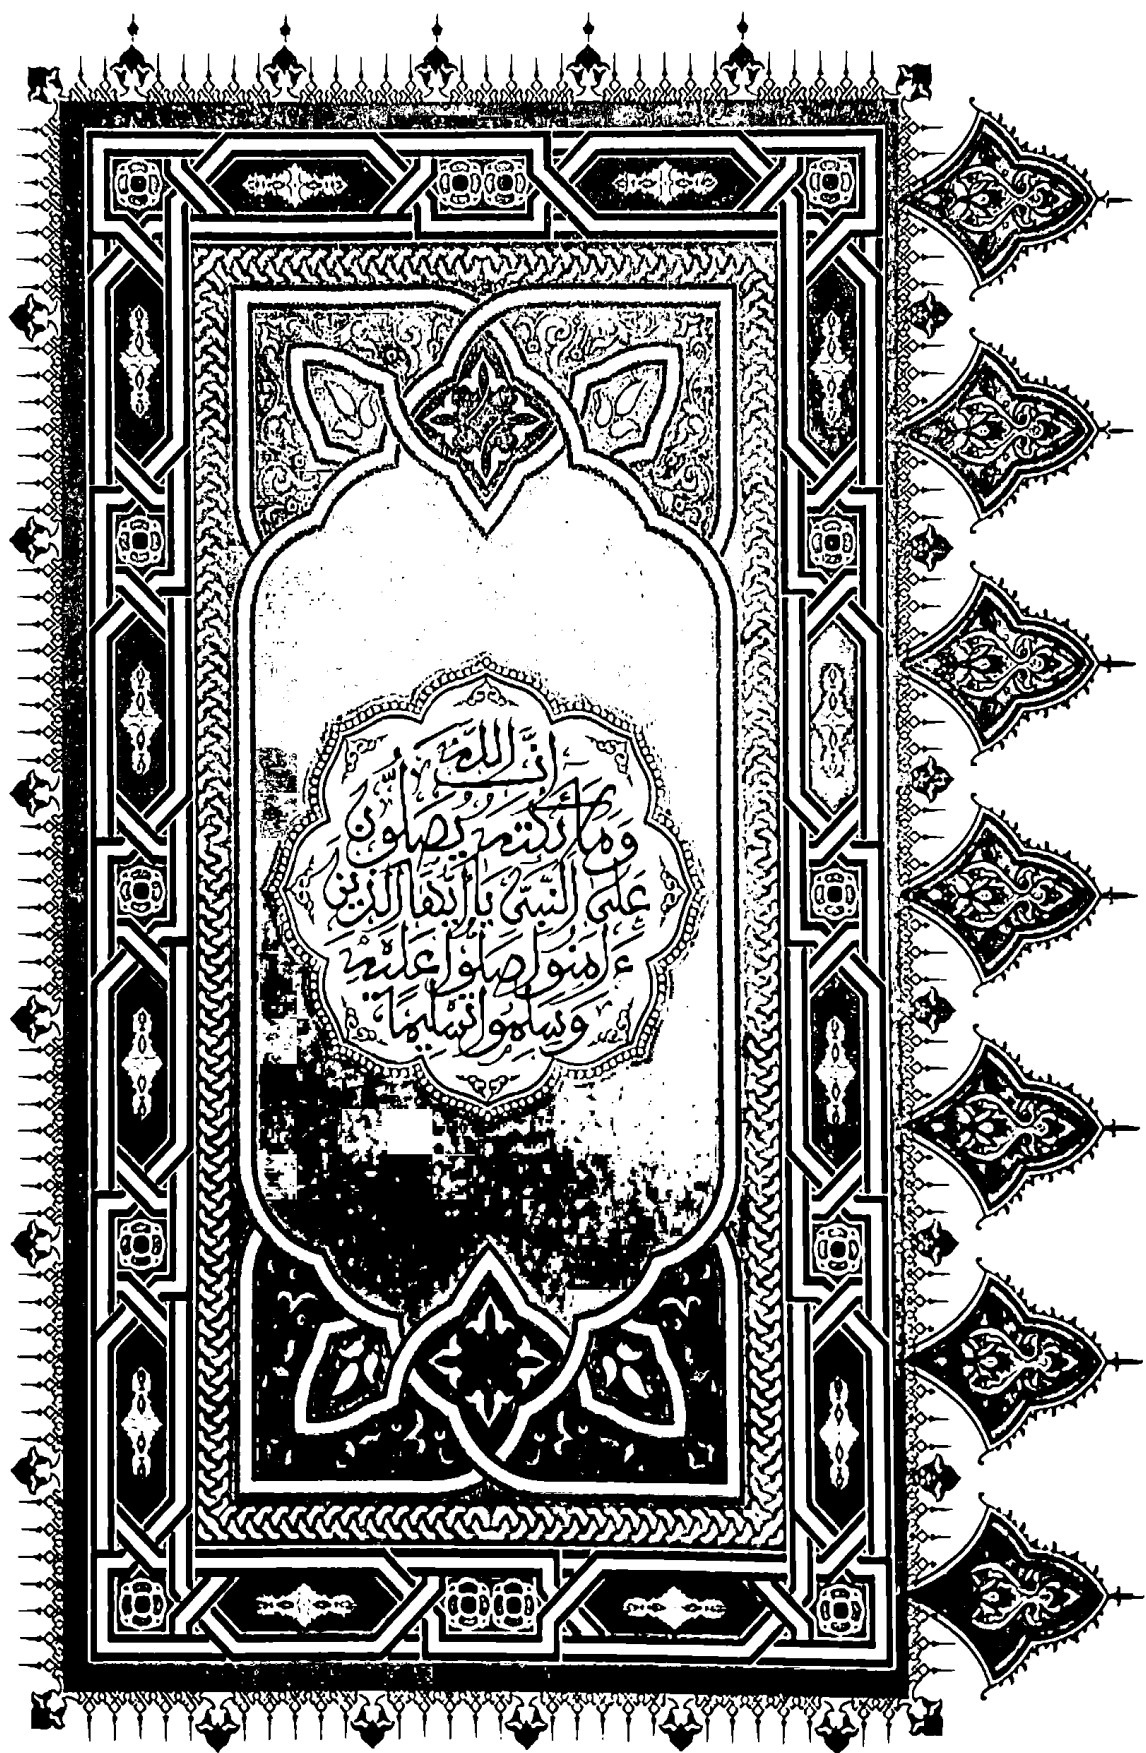 إِنَّ اللَّهَ
وَمَلَٰٓئِكَتَهُ يُصَلُّونَ
عَلَى النَّبِيِّ يَا أَيُّهَا الَّذِينَ
ءَامَنُوا صَلُّوا عَلَيْهِ
وَسَلِّمُوا تَسْلِيمًا